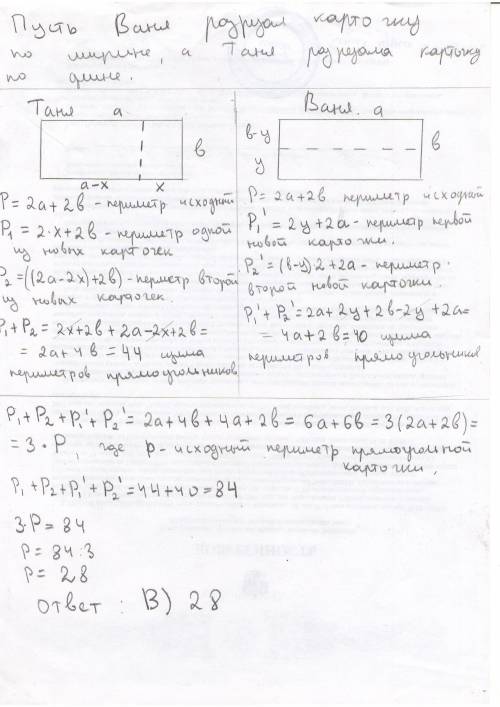 Пусть Ваня разрезал карточку
по ширине, а Таня разрезала карточку
по длине.
Таня a
в
a-x x
P = 2a + 2в - периметр исходный
P₁ = 2·x + 2в - периметр одной
из новых карточек
P₂ = ((2a-2x)+2в) - перметр второй
из новых карточек.
P₁ + P₂ = 2x+2в + 2a-2x+2в =
= 2a + 4в = 44 сумма
периметров прямоугольников
Ваня. a
в-y
y
в
P = 2a + 2в периметр исходный
P₁' = 2y + 2a - периметр первой
новой карточки.
P₂' = (в-y)·2 + 2a - периметр
второй новой карточки.
P₁' + P₂' = 2a + 2y + 2в - 2y + 2a =
= 4a + 2в = 40 сумма
периметров прямоугольников
P₁ + P₂ + P₁' + P₂' = 2a + 4в + 4a + 2в = 6a + 6в = 3(2a + 2в) =
= 3 · P, где p - исходный периметр прямоугольной
карточки.
P₁ + P₂ + P₁' + P₂' = 44 + 40 = 84
3·P = 84
P = 84 : 3
P = 28
ответ : В) 28